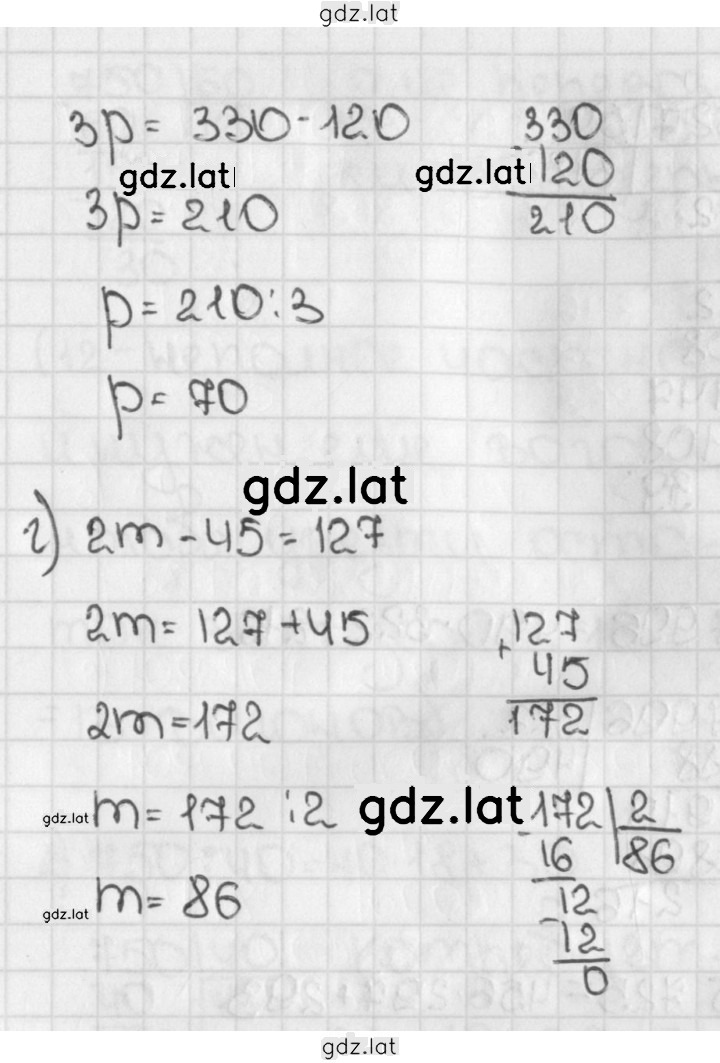 gdz.lat
3p = 330 - 120
330
gdz.lat
gdz.lat
- 120
3p = 210
210
p = 210 : 3
p = 70
gdz.lat
г) 2m - 45 = 127
2m = 127 + 45
127
+ 45
2m = 172
172
gdz.lat
m = 172 : 2
gdz.lat
- 172 | 2
16
86
gdz.lat
m = 86
12
- 12
0
gdz.lat